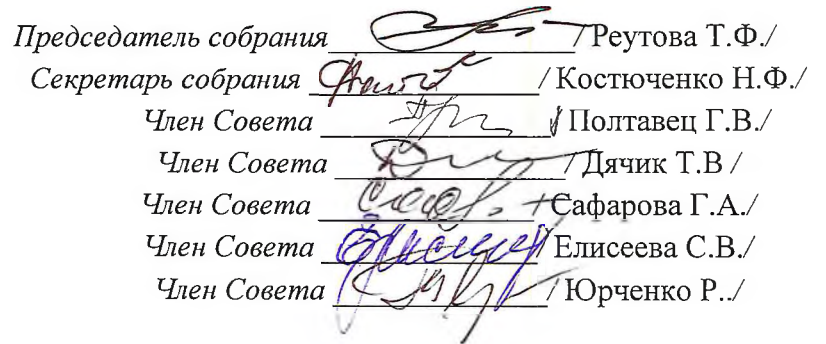 Председатель собрания / Реутова Т.Ф./
Секретарь собрания / Костюченко Н.Ф./
Член Совета / Полтавец Г.В./
Член Совета / Дячик Т.В /
Член Совета / Сафарова Г.А./
Член Совета / Елисеева С.В./
Член Совета / Юрченко Р../